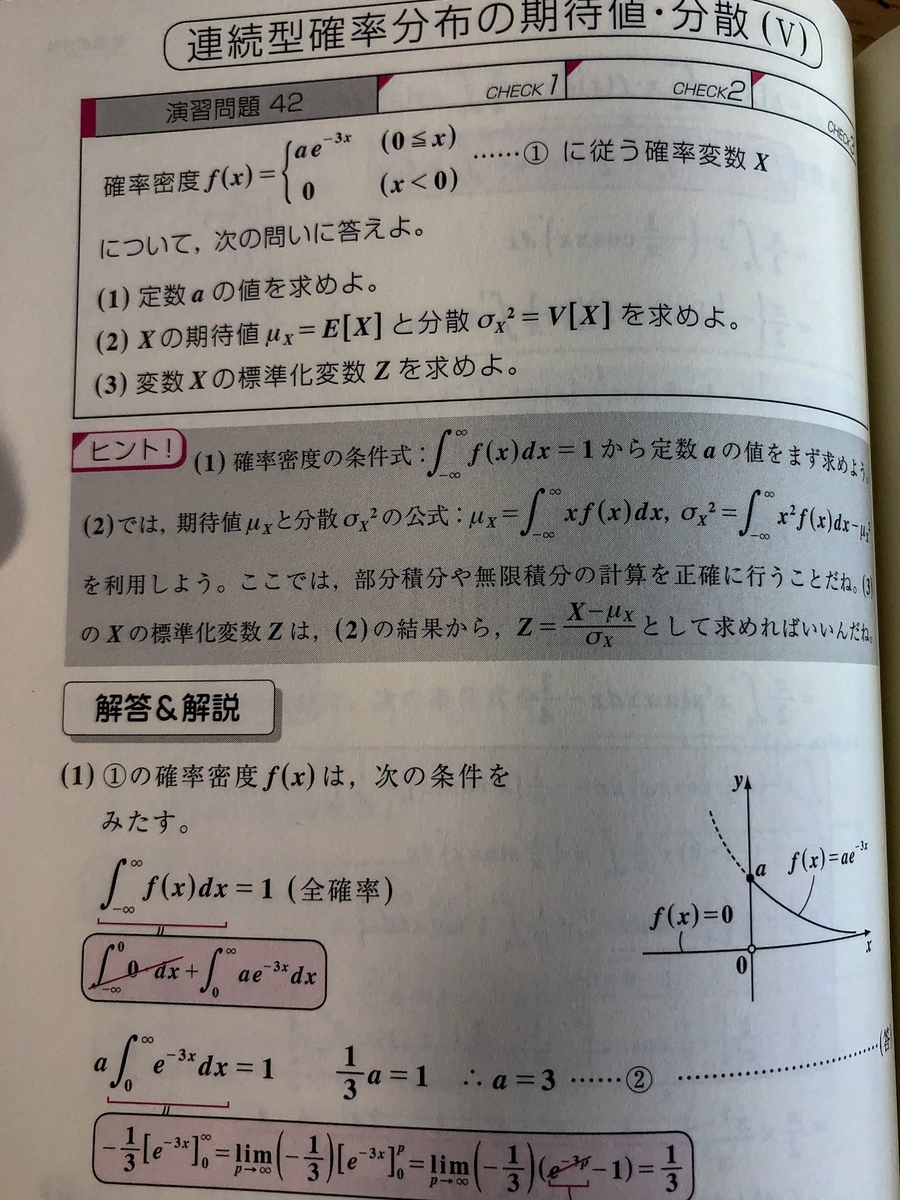 連続型確率分布の期待値・分散(V)
演習問題 42 CHECK1 CHECK2 CHECK3
確率密度 f(x) = { ae^{-3x} (0≦x) 0 (x<0) ……① に従う確率変数 X
について，次の問いに答えよ。
(1) 定数 a の値を求めよ。
(2) X の期待値 μ_X = E[X] と分散 σ_X² = V[X] を求めよ。
(3) 変数 X の標準化変数 Z を求めよ。
ヒント! (1) 確率密度の条件式：∫_{-∞}^{∞} f(x)dx = 1 から定数 a の値をまず求めよう。
(2)では，期待値 μ_X と分散 σ_X² の公式：μ_X = ∫_{-∞}^{∞} xf(x)dx, σ_X² = ∫_{-∞}^{∞} x²f(x)dx − μ_X²
を利用しよう。ここでは，部分積分や無限積分の計算を正確に行うことだね。(3)
の X の標準化変数 Z は，(2)の結果から，Z = (X−μ_X)/σ_X として求めればいいんだね。
解答＆解説
(1) ①の確率密度 f(x) は，次の条件を
みたす。
∫_{-∞}^{∞} f(x)dx = 1 (全確率)
∫_{-∞}^{0} 0・dx + ∫_{0}^{∞} ae^{-3x}dx
y
a f(x)=ae^{-3x}
f(x)=0
0 x
a∫_{0}^{∞} e^{-3x}dx = 1 1/3 a = 1 ∴ a = 3 ……② ……………(答
−1/3[e^{-3x}]_{0}^{∞} = lim_{p→∞}(−1/3)[e^{-3x}]_{0}^{p} = lim_{p→∞}(−1/3)(e^{-3p}−1) = 1/3